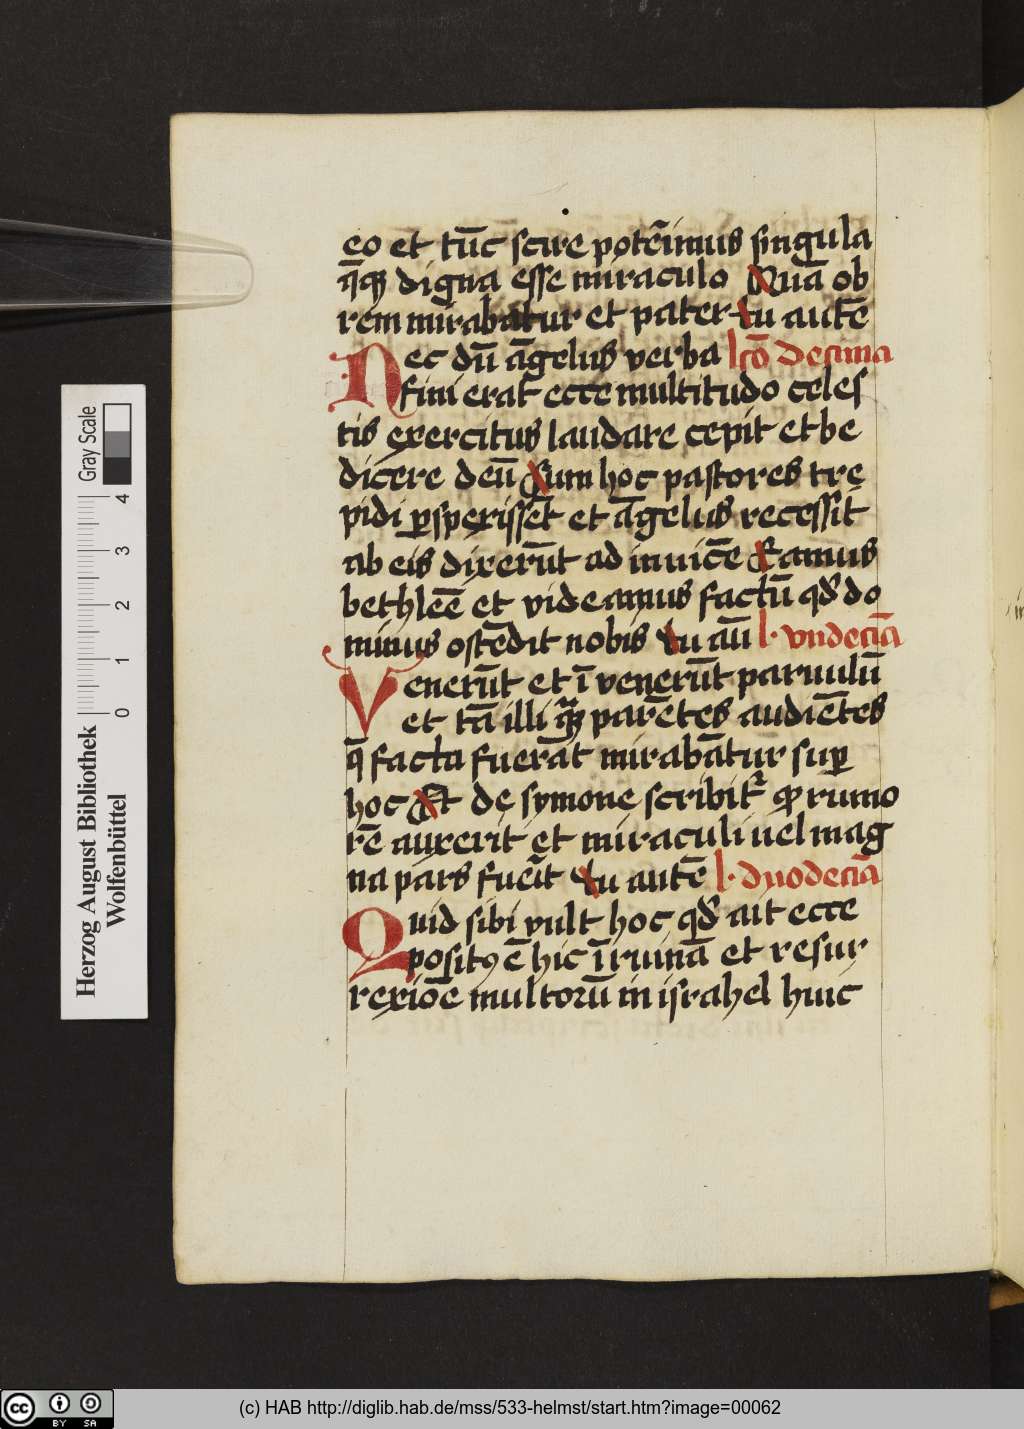 eo et tūc scire potēimus singula
q̄qꝫ digna esse miraculo Quā ob
rem mirabatur et pater tu autē
Nec dū āgelus verba lc̄o decima
finierat̄ ecce multitudo celes
tis exercitus laudare cepit et be
dicere deū Cum hoc pastores tre
pidi ꝑsperissēt et āgelus recessit
ab eis dixerūt ad inuicē Eamus
bethleē et videamus factū qd̄ do
minus ostēdit nobis tu aū l. vndecīa
Venerūt et ī venerūt paruulū
et tā illi parētes audiētes
q̄ facta fuerāt mirabātur suꝑ
hoc Et de symone scribit᷑ ꝙ rumo
rē auxerit et miraculi uel mag
na pars fuēit tu autē l. dyodecīa
Quid sibi vult hoc qd̄ ait ecce
positꝰ ē hic ī ruinā et resur
rexiōe multorū in israhel huic
Gray Scale
4
3
2
1
0
Herzog August Bibliothek
Wolfenbüttel
cc BY SA
(c) HAB http://diglib.hab.de/mss/533-helmst/start.htm?image=00062